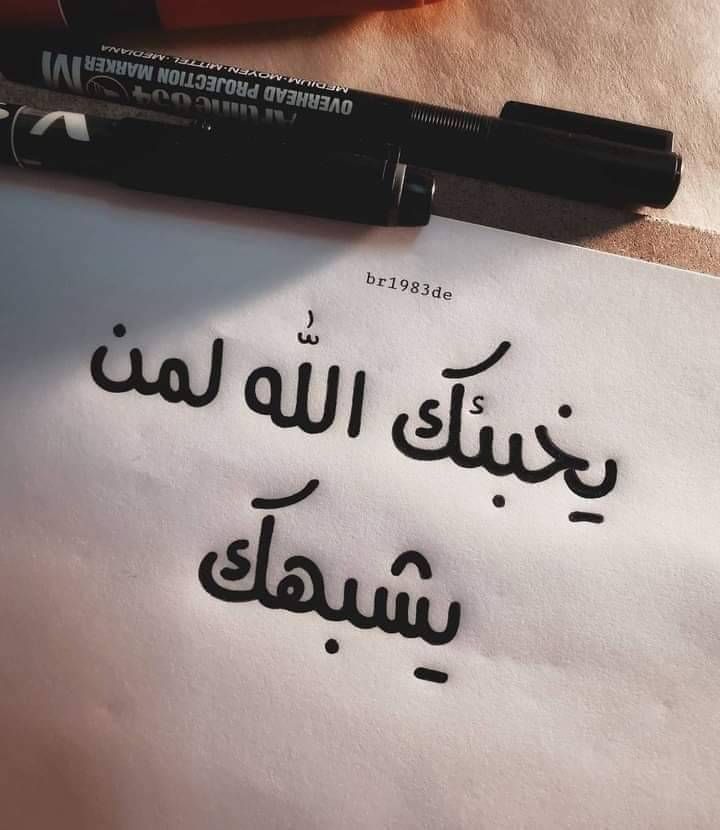 MEDIUM-MOYEN-MITTEL-MEDIANA
OVERHEAD PROJECTION MARKER M
Artline 854
br1983de
يخبئك الله لمن
يشبهك